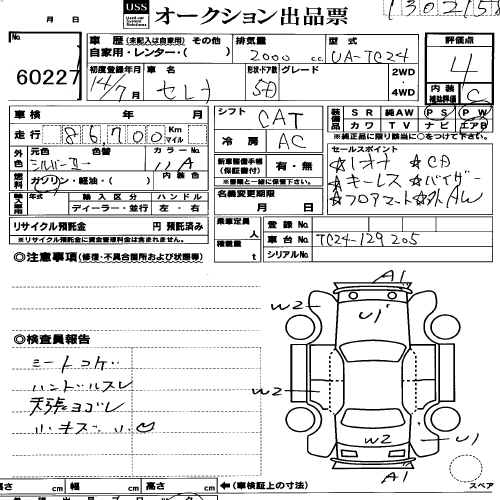 USS オークション出品票
1302158
月 日
No. 60227
車歴 (未記入は自家用) その他
自家用・レンター・( )
排気量 2000 cc
型式 UA-TC24
評価点 4
初度登録年月 14/7月
車名 セレナ
形状・ドア数 5D
グレード
2WD・4WD
内装補助評価 C
車検 年 月
シフト CAT
装備品 SR 純AW PS PW
カワ TV ナビ エアB
※純正品に限り該当に○をつけて下さい
走行 86,700 Km マイル
冷房 AC
外色 元色 シルバーII 色替 カラーNo. 内装色
燃料 ガソリン・軽油・( )
新車整備手帳(保証書付) 有・無
※整備と一緒に保管下さい。
セールスポイント
☆キーレス ☆バイザー
☆フロアマット ☆外AW
輸入車用 年式 輸入区分 ハンドル
ディーラー・並行 左・右
名義変更期限 月 日
リサイクル預託金 円 預託済み
※リサイクル預託金に資金管理料金は含まれません
乗車定員 人
積載量 t
登録No.
車台No. TC24-129205
シリアルNo.
◎注意事項(修復・不具合箇所および状態等)
◎検査員報告
シートコゲ
ハンドルスレ
天張ヨゴレ
小キズ小凹
A1
W2
U1
W2
W2
U1
A1
長さ cm 幅 cm 高さ cm ←(車検証上の寸法)
スペア